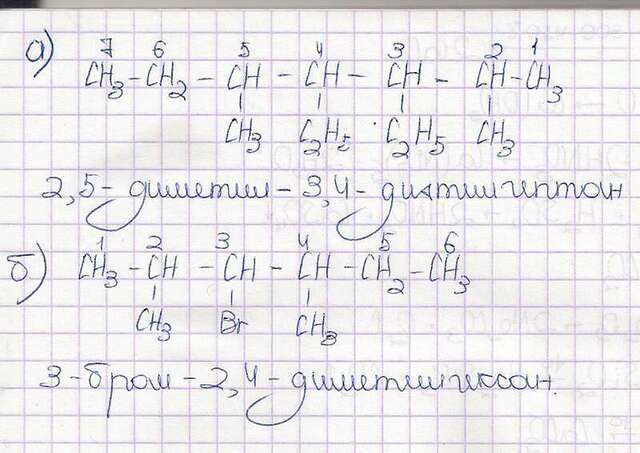 а)
7 6 5 4 3 2 1
CH₃ - CH₂ - CH - CH - CH - CH - CH₃
CH₃ C₂H₅ C₂H₅ CH₃
2,5 - диметил - 3,4 - диэтилгептан
б)
1 2 3 4 5 6
CH₃ - CH - CH - CH - CH₂ - CH₃
CH₃ Br CH₃
3 - бром - 2,4 - диметилгексан.